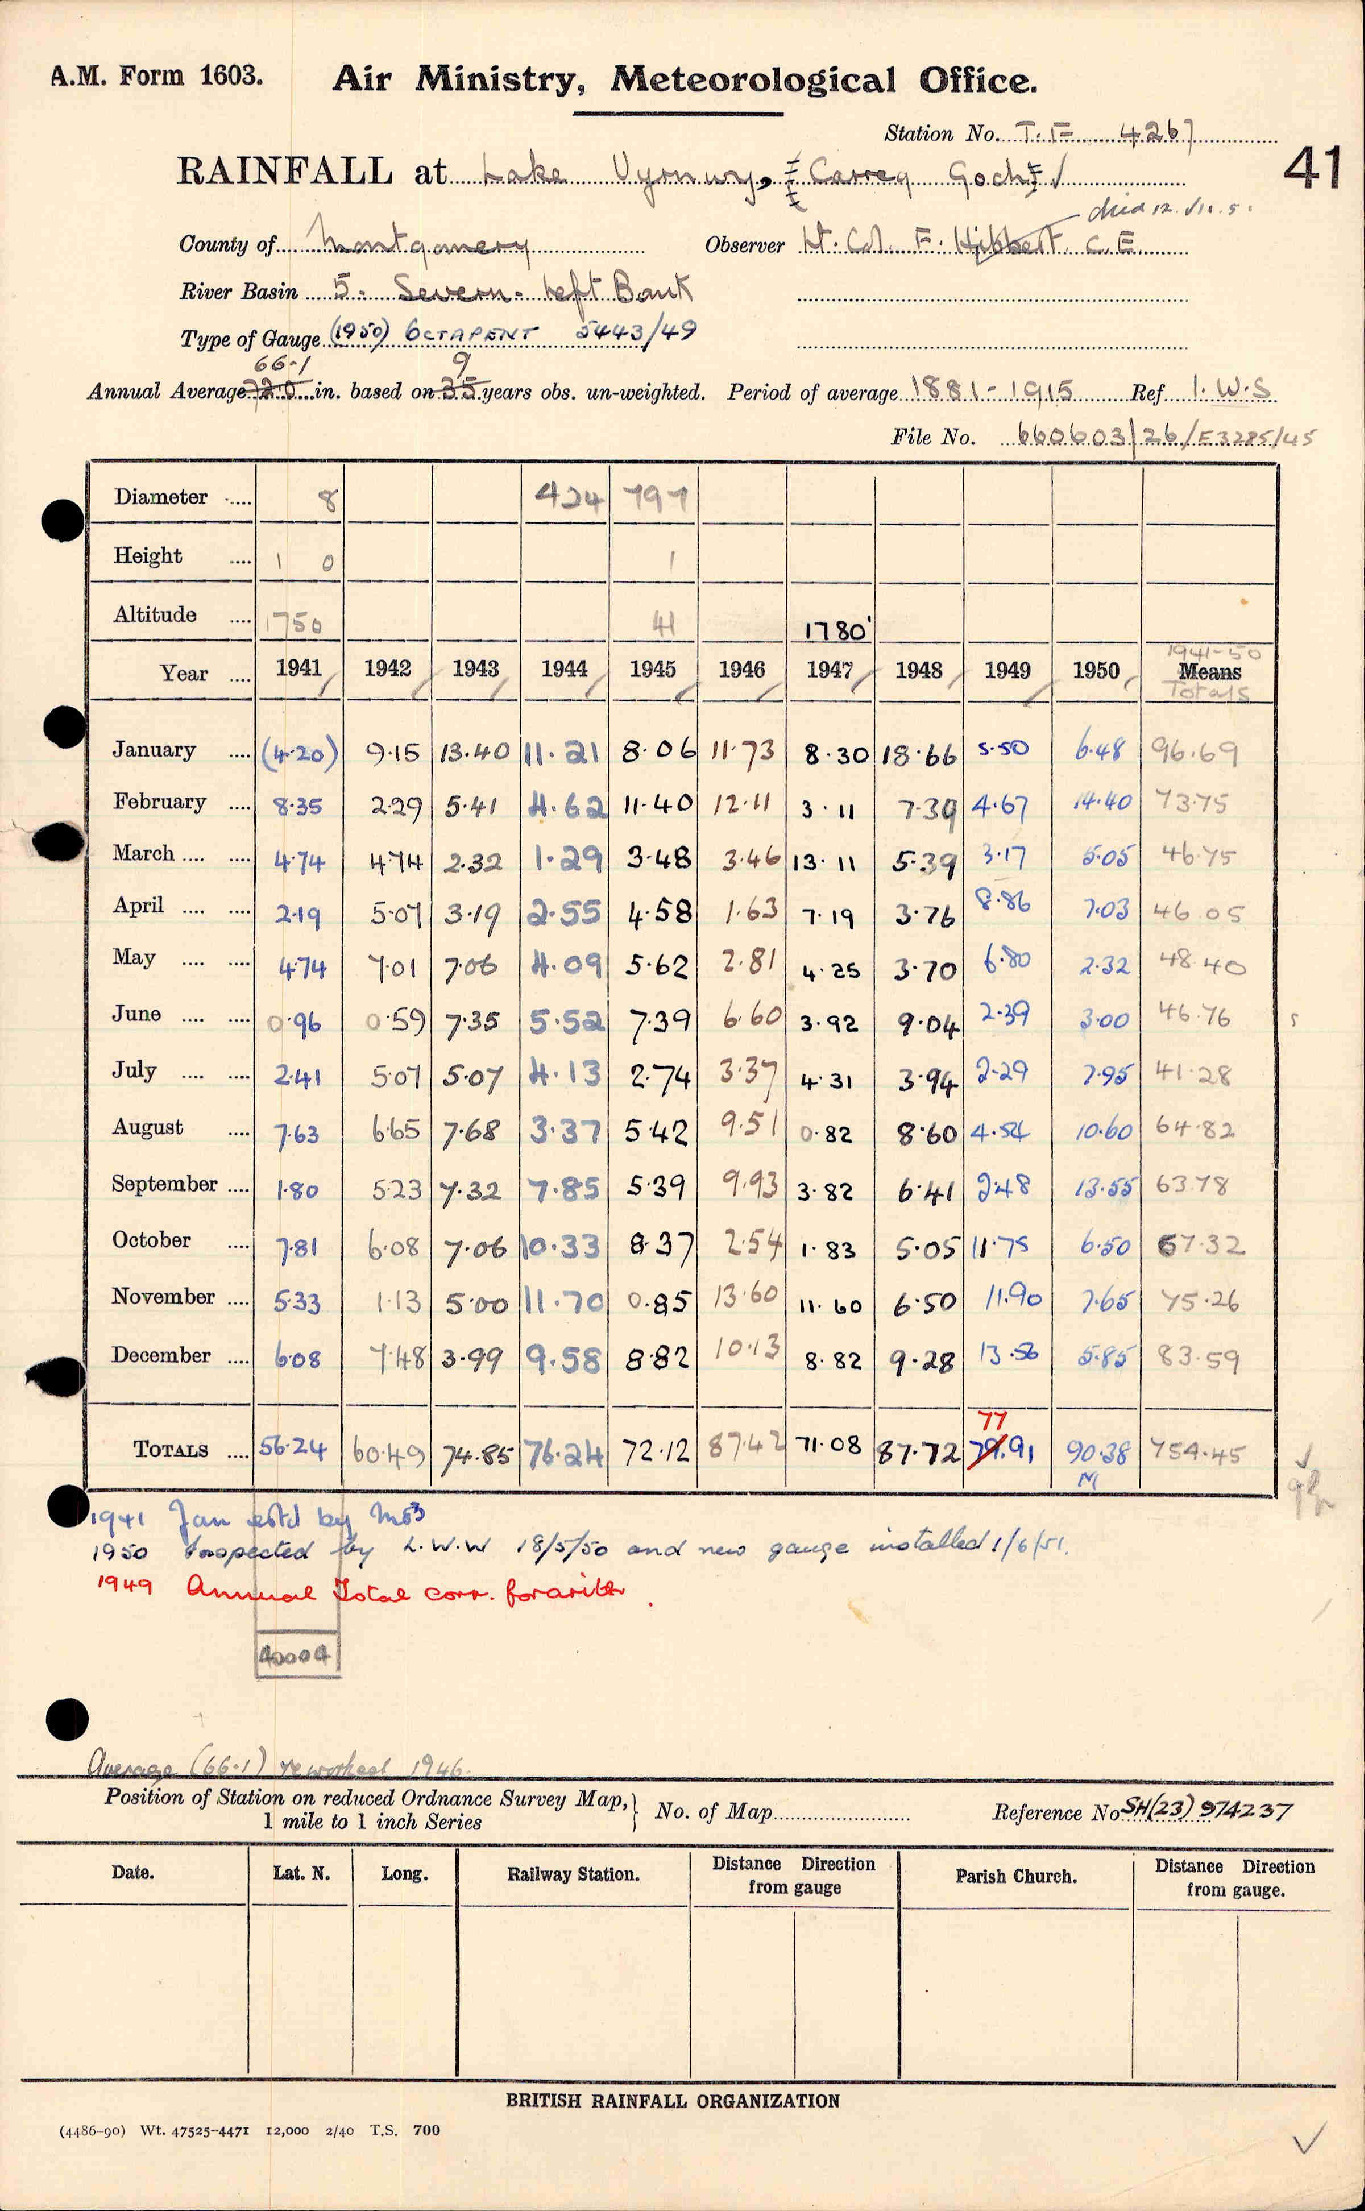 A.M. Form 1603. Air Ministry, Meteorological Office.
Station No. T.F 4267
41
RAINFALL at Lake Vyrnwy, (Carreg Goch)
died 12.
County of Montgomery Observer Lt. Col. F. Hibbert. C.E.
River Basin 5. Severn. Left Bank
Type of Gauge (1950) OCTAPENT 5443/49
66.1 9
Annual Average 72.0 in. based on 35 years obs. un-weighted. Period of average 1881-1915 Ref I.W.S
File No. 660603/26/E3285/45
Diameter .... 8 424 797
Height .... 1 0 1
Altitude .... 1750 41 1780'
1941-50
Year .... 1941 1942 1943 1944 1945 1946 1947 1948 1949 1950 Means
Totals
January .... (4.20) 9.15 13.40 11.21 8.06 11.73 8.30 18.66 5.50 6.48 96.69
February .... 8.35 2.29 5.41 4.62 11.40 12.11 3.11 7.39 4.67 14.40 73.75
March .... .... 4.74 4.74 2.32 1.29 3.48 3.46 13.11 5.39 3.17 5.05 46.75
April .... .... 2.19 5.07 3.19 2.55 4.58 1.63 7.19 3.76 8.86 7.03 46.05
May .... .... 4.74 7.01 7.06 4.09 5.62 2.81 4.25 3.70 6.80 2.32 48.40
June .... .... 0.96 0.59 7.35 5.52 7.39 6.60 3.92 9.04 2.39 3.00 46.76 s
July .... .... 2.41 5.07 5.07 4.13 2.74 3.37 4.31 3.94 2.29 7.95 41.28
August .... 7.63 6.65 7.68 3.37 5.42 9.51 0.82 8.60 4.54 10.60 64.82
September .... 1.80 5.23 7.32 7.85 5.39 9.93 3.82 6.41 2.48 13.55 63.78
October .... 7.81 6.08 7.06 10.33 8.37 2.54 1.83 5.05 11.75 6.50 67.32
November .... 5.33 1.13 5.00 11.70 0.85 13.60 11.60 6.50 11.90 7.65 75.26
December .... 6.08 7.48 3.99 9.58 8.82 10.13 8.82 9.28 13.56 5.85 83.59
77
TOTALS .... 56.24 60.49 74.85 76.24 72.12 87.42 71.08 87.72 79.91 90.38 754.45
M
1941 Jan estd by
1950 Inspected by L.W.W 18/5/50 and new gauge installed 1/6/51.
1949 Annual Total corr. for arith.
40004
Average (66.1) reworked 1946.
Position of Station on reduced Ordnance Survey Map,} No. of Map Reference No SH(23) 974237
1 mile to 1 inch Series
Date. Lat. N. Long. Railway Station. Distance Direction from gauge Parish Church. Distance Direction from gauge.
BRITISH RAINFALL ORGANIZATION
(4486-90) Wt. 47525-4471 12,000 2/40 T.S. 700